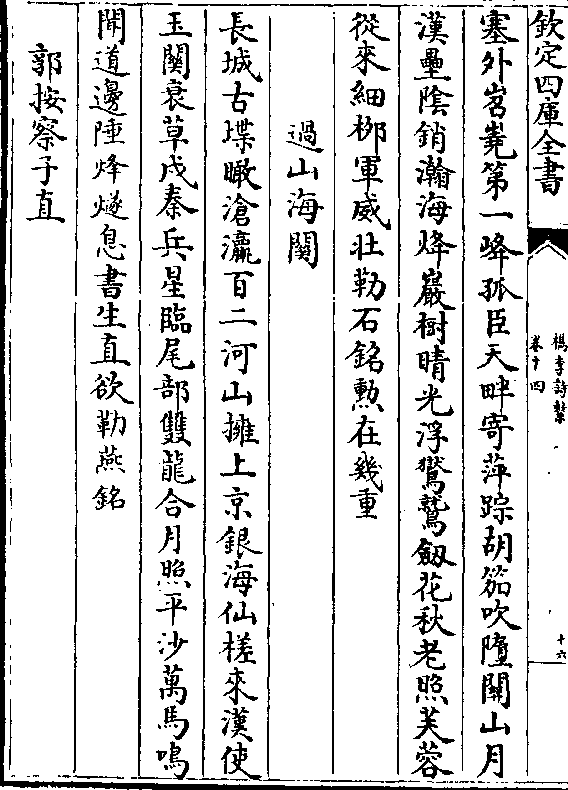 欽定四庫全書
檇李詩繫
卷十四
十六
塞外岧嶤第一峰孤臣天畔寄萍踪胡笳吹墮關山月
漢壘陰銷瀚海烽巖樹晴光浮鸑鷟劔花秋老照芙蓉
從來細栁軍威壯勒石銘勲在幾重
過山海關
長城古堞瞰滄瀛百二河山擁上京銀海仙槎來漢使
玉關衰草戍秦兵星臨尾部雙龍合月照平沙萬馬鳴
聞道邊陲烽燧息書生直欲勒燕銘
郭按察子直